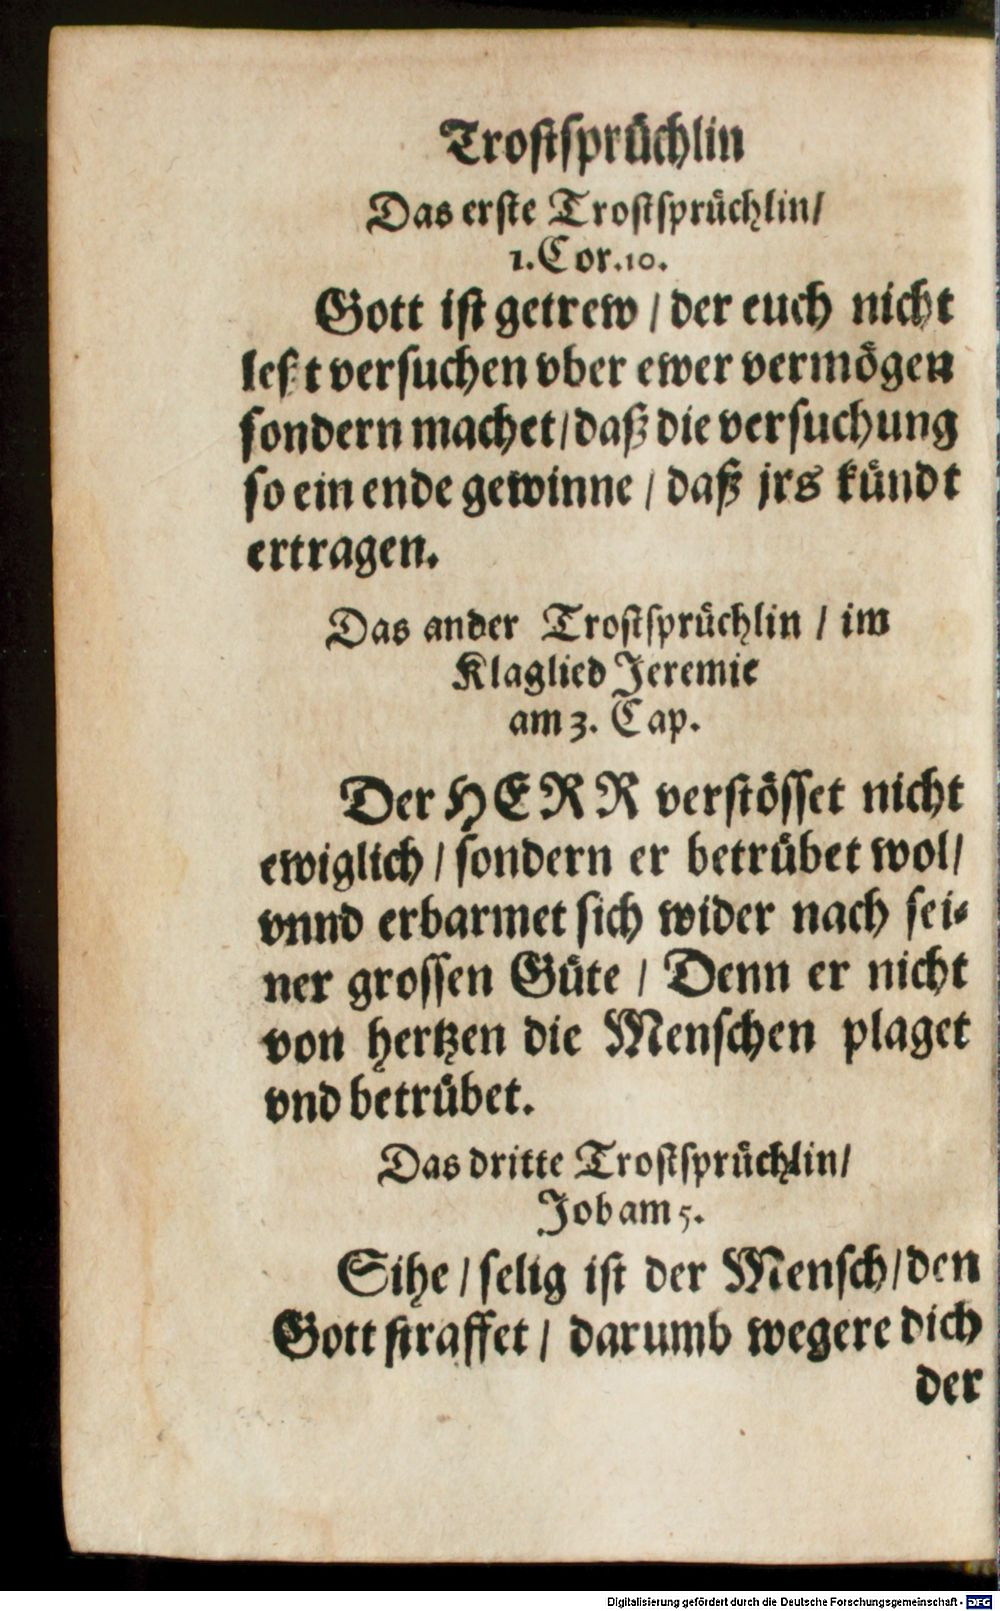 Trostsprüchlin
Das erste Trostsprüchlin/
1. Cor. 10.
Gott ist getrew / der euch nicht
leßt versuchen vber ewer vermögen
sondern machet / daß die versuchung
so ein ende gewinne / daß jrs kündt
ertragen.
Das ander Trostsprüchlin / im
Klaglied Jeremie
am 3. Cap.
Der HERR verstösset nicht
ewiglich / sondern er betrübet wol /
vnnd erbarmet sich wider nach sei-
ner grossen Güte / Denn er nicht
von hertzen die Menschen plaget
vnd betrübet.
Das dritte Trostsprüchlin /
Job am 5.
Sihe / selig ist der Mensch / den
Gott straffet / darumb wegere dich
der
Digitalisierung gefördert durch die Deutsche Forschungsgemeinschaft - DFG